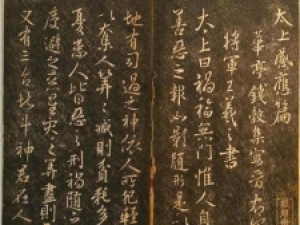 太上感應篇
華亭錢㲄集寫晉右軍
將軍王羲之書
太上曰禍福無門惟人自
善惡之報如影隨形是
地有司過之神依人所犯輕
以奪人算算減則貧耗多
憂患人皆惡之刑禍隨
慶避之惡星災之算盡則
又有三台北斗神君在人